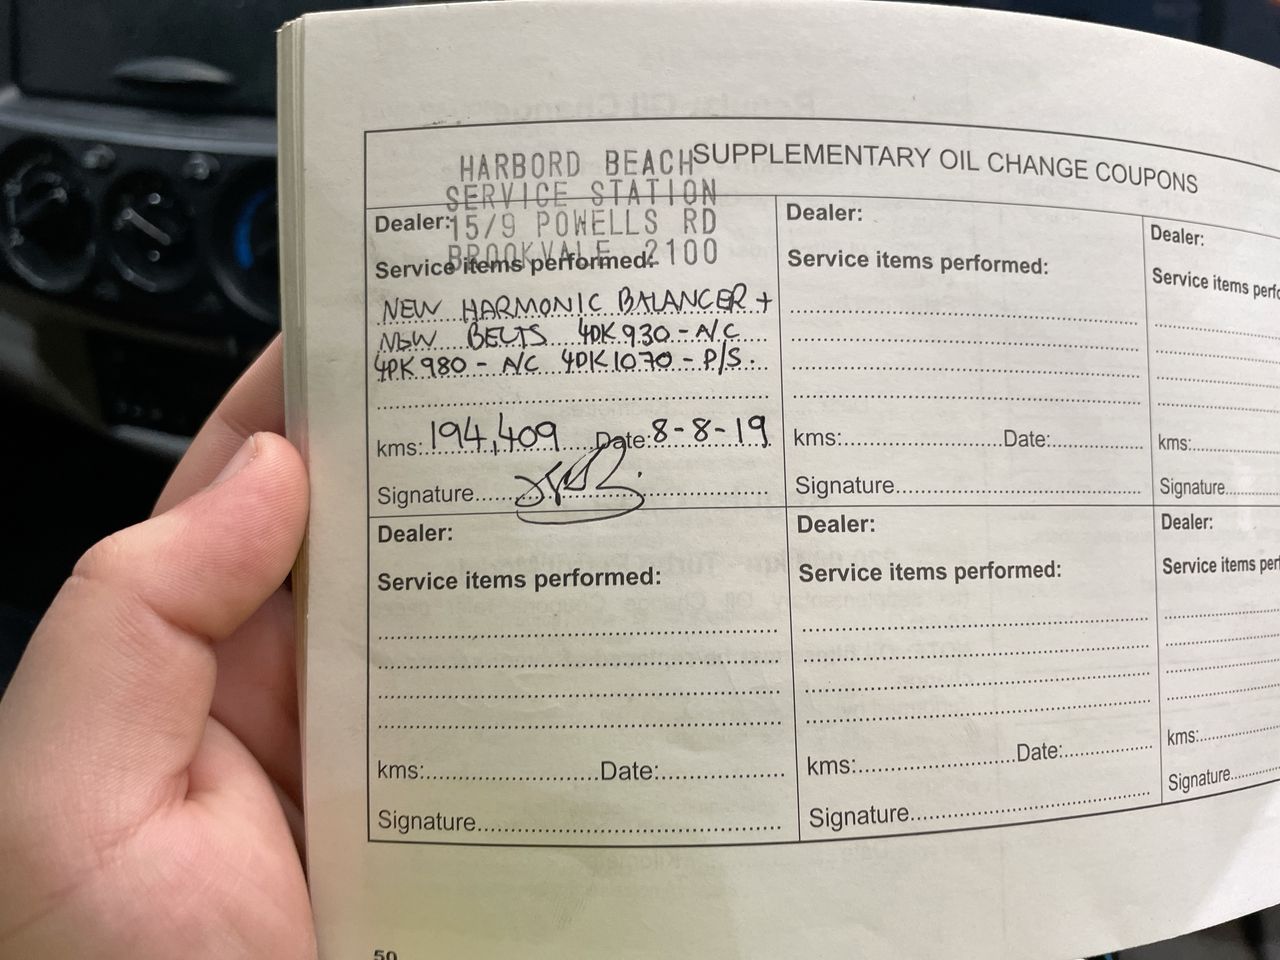 SUPPLEMENTARY OIL CHANGE COUPONS
HARBORD BEACH
SERVICE STATION
15/9 POWELLS RD
BROOKVALE 2100
Dealer:
Service items performed:
NEW HARMONIC BALANCER +
NEW BELTS 4PK930-A/C
4PK980 - A/C 4PK1070 - P/S.
kms: 194,409 Date: 8-8-19
Signature
Dealer:
Service items performed:
kms: Date:
Signature
Dealer:
Service items perfo
kms:
Signature
Dealer:
Service items performed:
kms: Date:
Signature
Dealer:
Service items performed:
kms: Date:
Signature
Dealer:
Service items per
kms:
Signature
50